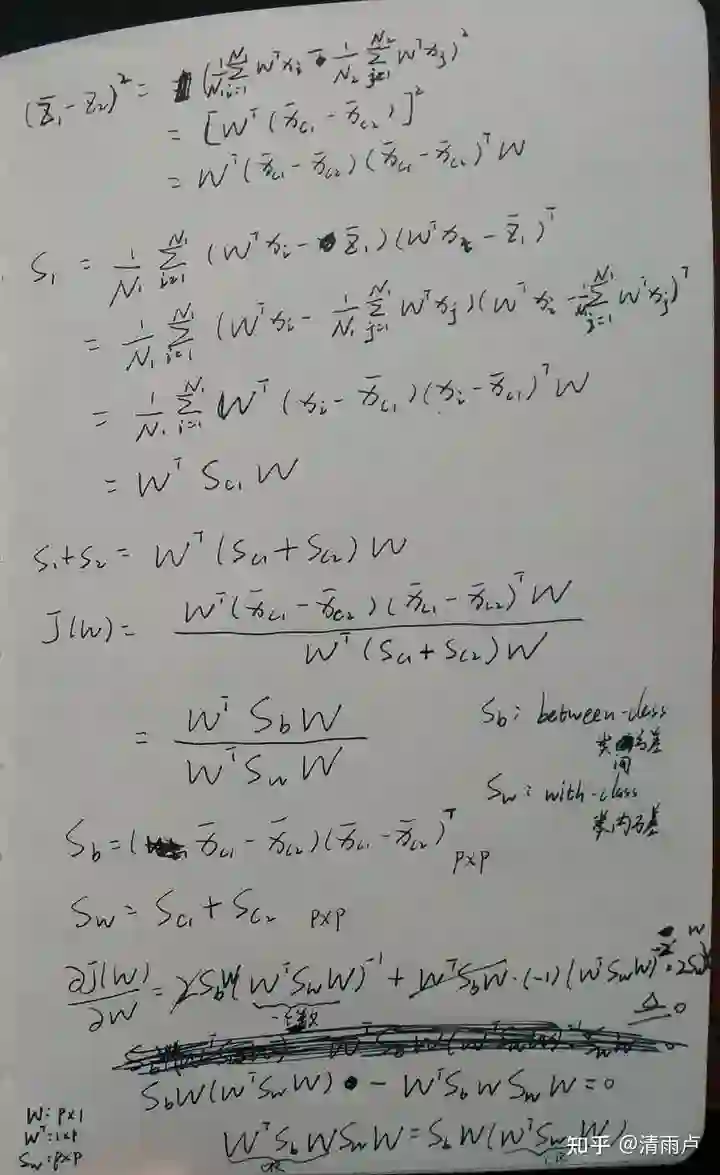 (z̄₁ - z̄₂)² = (1/N₁ ∑_{i=1}^{N₁} Wᵀxᵢ - 1/N₂ ∑_{j=1}^{N₂} Wᵀxⱼ)²
= [Wᵀ(x̄c₁ - x̄c₂)]²
= Wᵀ(x̄c₁ - x̄c₂)(x̄c₁ - x̄c₂)ᵀW
S₁ = 1/N₁ ∑_{i=1}^{N₁} (Wᵀxᵢ - z̄₁)(Wᵀxᵢ - z̄₁)ᵀ
= 1/N₁ ∑_{i=1}^{N₁} (Wᵀxᵢ - 1/N₁ ∑_{j=1}^{N₁} Wᵀxⱼ)(Wᵀxᵢ - 1/N₁ ∑_{j=1}^{N₁} Wᵀxⱼ)ᵀ
= 1/N₁ ∑_{i=1}^{N₁} Wᵀ(xᵢ - x̄c₁)(xᵢ - x̄c₁)ᵀW
= Wᵀ Sc₁ W
S₁+S₂ = Wᵀ(Sc₁+Sc₂)W
J(W) = Wᵀ(x̄c₁ - x̄c₂)(x̄c₁ - x̄c₂)ᵀW / Wᵀ(Sc₁+Sc₂)W
= WᵀSbW / WᵀSwW
Sb: between-class
类间方差
Sw: with-class
类内方差
Sb = (x̄c₁ - x̄c₂)(x̄c₁ - x̄c₂)ᵀ p×p
Sw = Sc₁ + Sc₂ p×p
∂J(W)/∂W = 2SbW(WᵀSwW)⁻¹ + WᵀSbW·(-1)(WᵀSwW)⁻²·2SwW ≜ 0
一个数
SbW(WᵀSwW) - WᵀSbWSwW = 0
WᵀSbWSwW = SbW(WᵀSwW)
W: p×1
Wᵀ: 1×p
Sw: p×p
知乎 @清雨卢